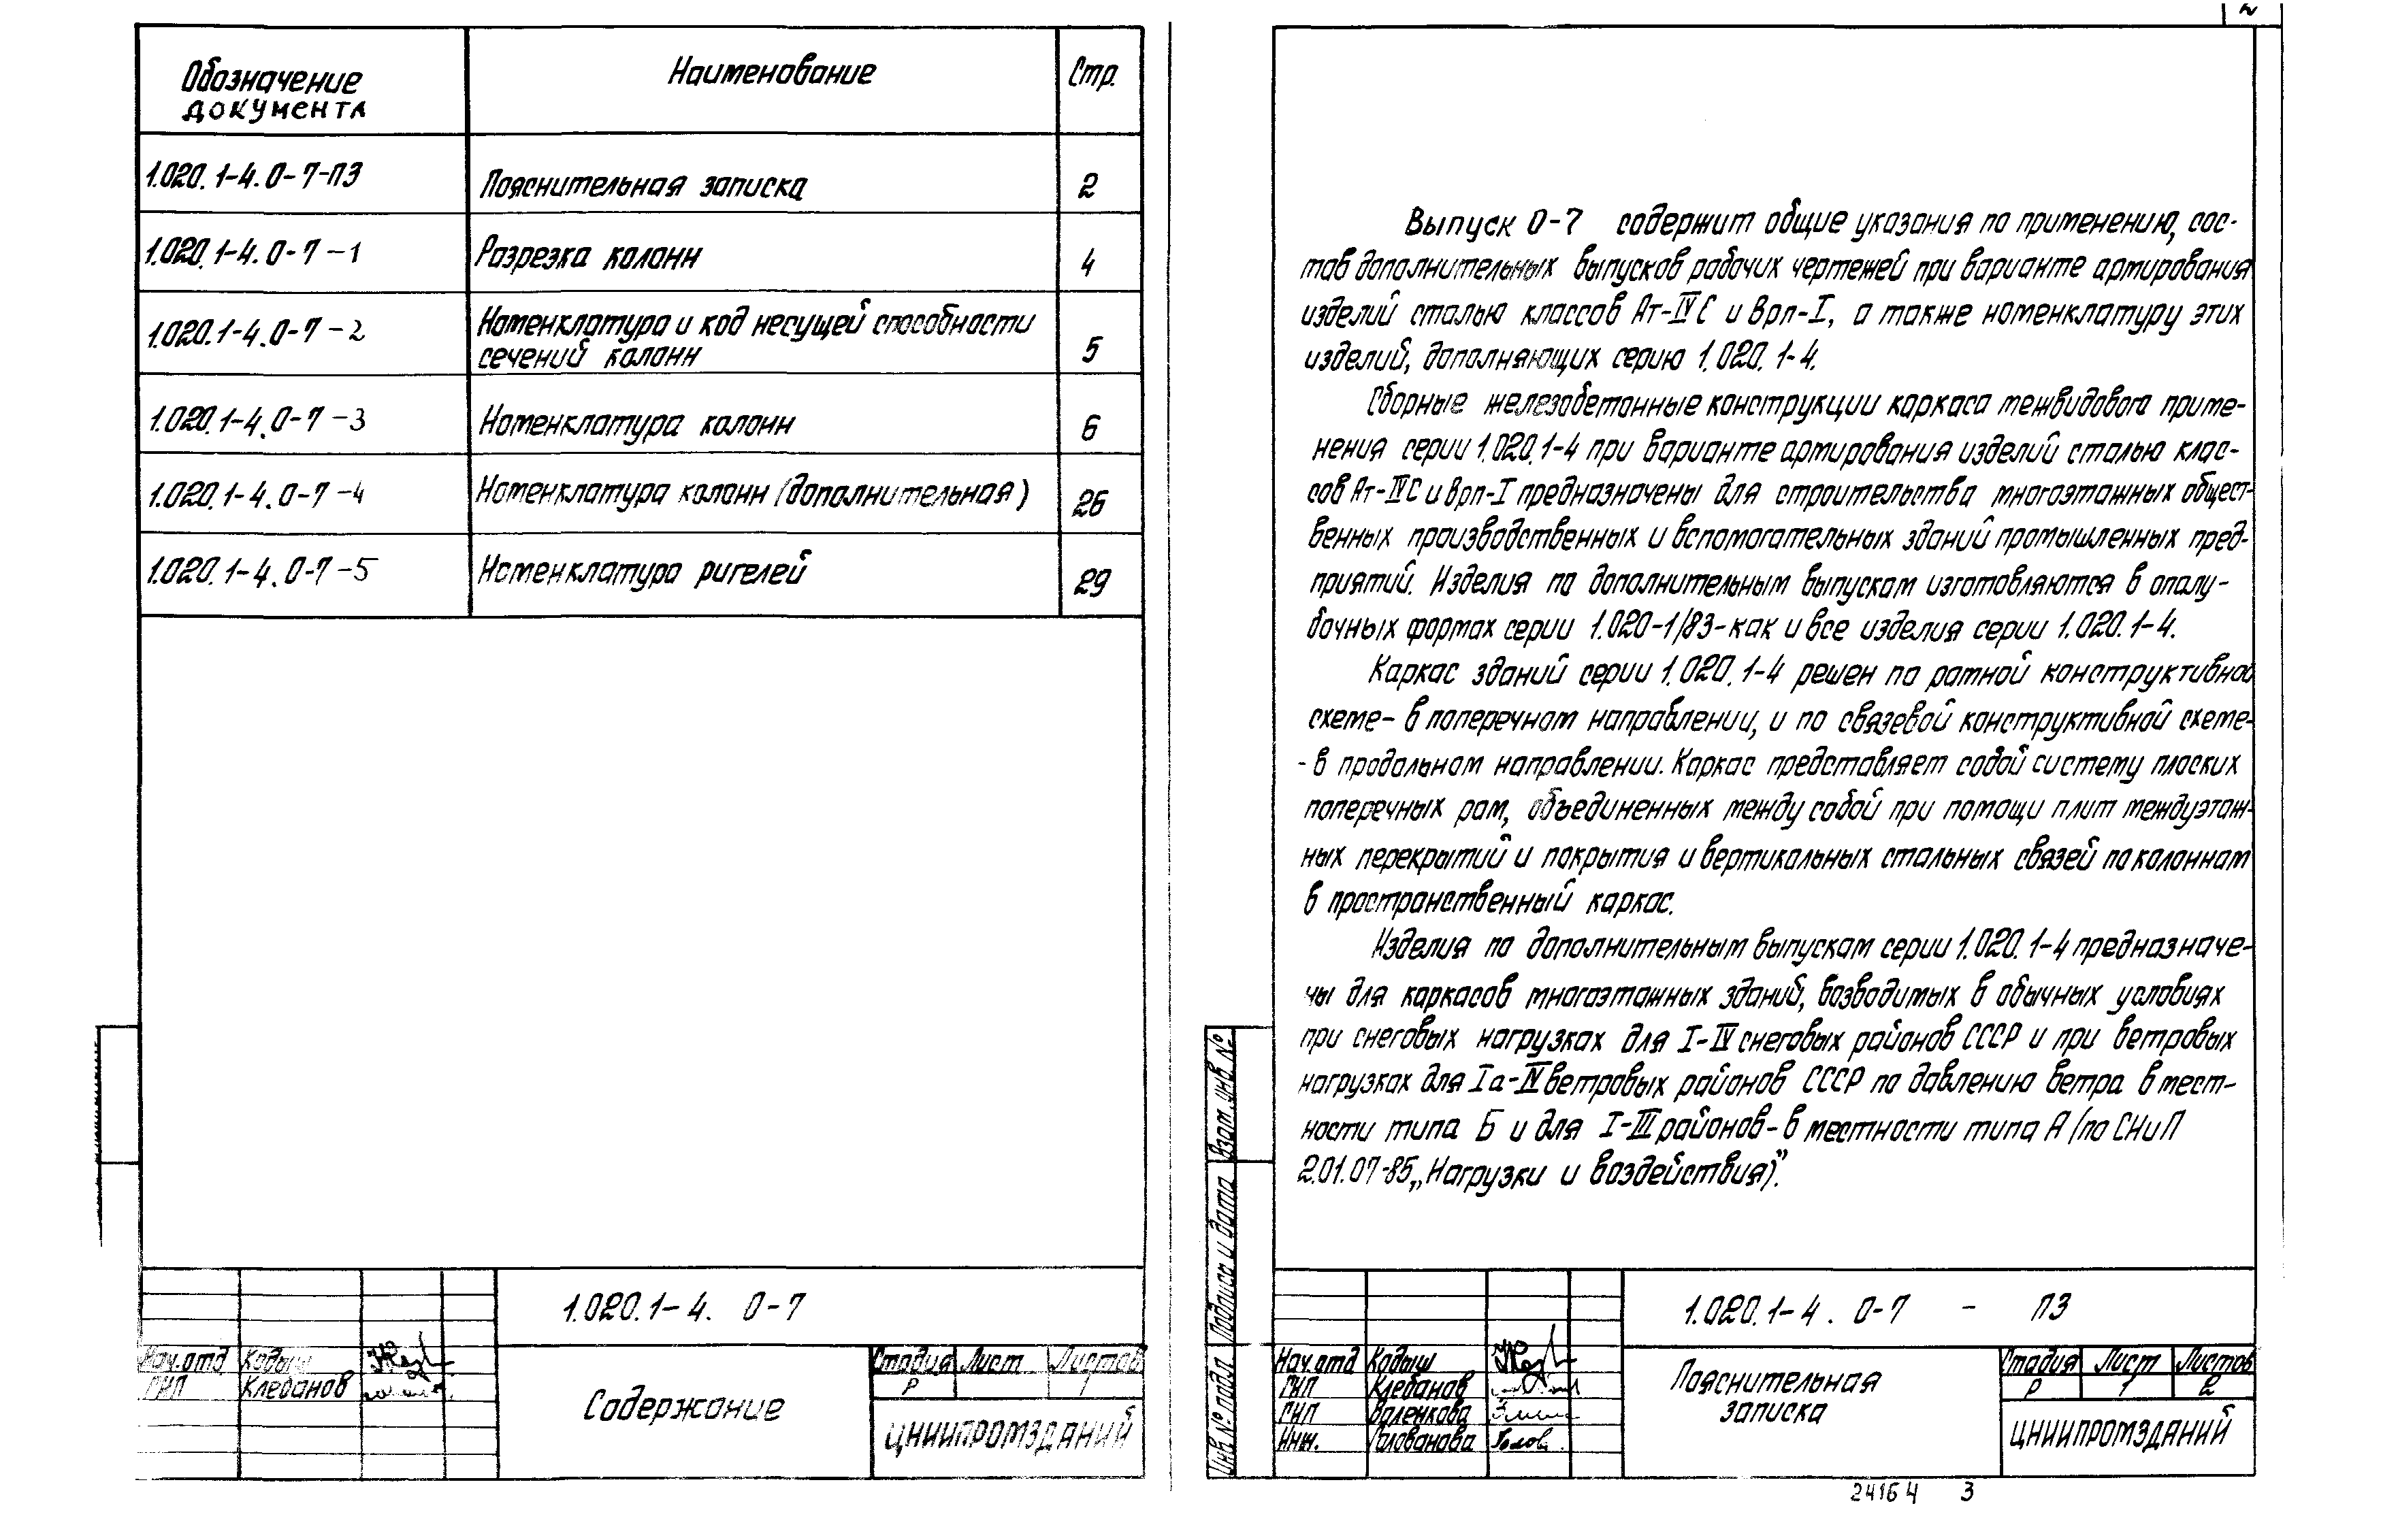 Обозначение документа	Наименование	Стр.
1.020.1-4.0-7-ПЗ	Пояснительная записка	2
1.020.1-4.0-7-1	Разрезка колонн	4
1.020.1-4.0-7-2	Номенклатура и код несущей способности
сечений колонн	5
1.020.1-4.0-7-3	Номенклатура колонн	6
1.020.1-4.0-7-4	Номенклатура колонн (дополнительная)	26
1.020.1-4.0-7-5	Номенклатура ригелей	29
1.020.1-4. 0-7
Нач.отд	Кодыш
ГИП	Клебанов
Содержание
Стадия	Лист	Листов
Р		1
ЦНИИПРОМЗДАНИЙ
2
Выпуск 0-7 содержит общие указания по применению, сос-
тав дополнительных выпусков рабочих чертежей при варианте армирования
изделий сталью классов Ат-IVС и Врп-I, а также номенклатуру этих
изделий, дополняющих серию 1.020.1-4.
Сборные железобетонные конструкции каркаса межвидового приме-
нения серии 1.020.1-4 при варианте армирования изделий сталью клас-
сов Ат-IVС и Врп-I предназначены для строительства многоэтажных общест-
венных производственных и вспомогательных зданий промышленных пред-
приятий. Изделия по дополнительным выпускам изготовляются в опалу-
бочных формах серии 1.020-1/83-как и все изделия серии 1.020.1-4.
Каркас зданий серии 1.020.1-4 решен по рамной конструктивной
схеме- в поперечном направлении, и по связевой конструктивной схеме-
- в продольном направлении. Каркас представляет собой систему плоских
поперечных рам, объединенных между собой при помощи плит междуэтаж-
ных перекрытий и покрытия и вертикальных стальных связей по колоннам
в пространственный каркас.
Изделия по дополнительным выпускам серии 1.020.1-4 предназначе-
ны для каркасов многоэтажных зданий, возводимых в обычных условиях
при снеговых нагрузках для I-IV снеговых районов СССР и при ветровых
нагрузках для Iа-IV ветровых районов СССР по давлению ветра в мест-
ности типа Б и для I-III районов-в местности типа А (по СНиП
2.01.07-85„Нагрузки и воздействия)".
Взам.инв.№
Подпись и дата
Инв.№ подл.
1.020.1-4. 0-7 - ПЗ
Нач.отд	Кодыш
ГИП	Клебанов
ГИП	Валенкова
Инж.	Голованова	Голов
Пояснительная
записка
Стадия	Лист	Листов
Р	1	2
ЦНИИПРОМЗДАНИЙ
24164 3